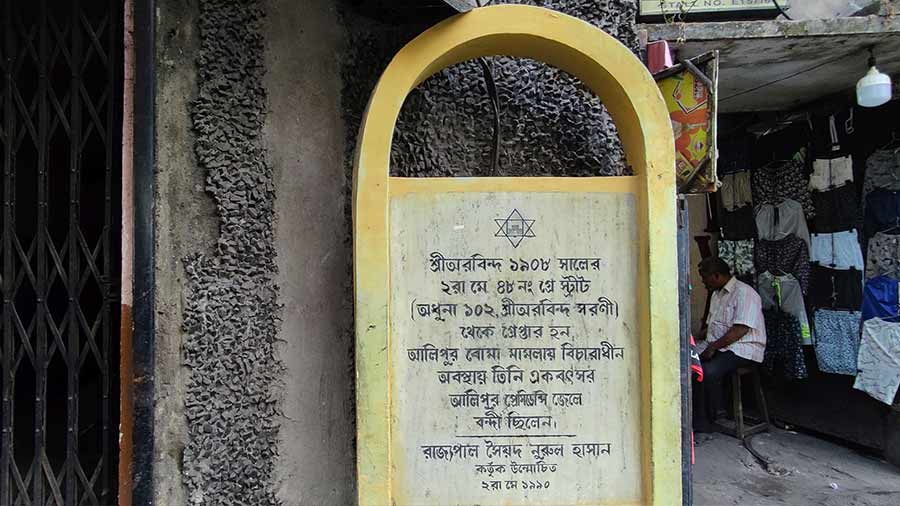 শ্রীঅরবিন্দ ১৯০৮ সালের
২রা মে ৪৮ নং গ্রে স্ট্রীট
(অধুনা ১০২, শ্রীঅরবিন্দ সরণী)
থেকে গ্রেপ্তার হন,
আলিপুর বোমা মামলায় বিচারাধীন
অবস্থায় তিনি একবৎসর
আলিপুর প্রেসিডেন্সি জেলে
বন্দী ছিলেন।
রাজ্যপাল সৈয়দ নুরুল হাসান
কর্তৃক উন্মোচিত
২রা মে ১৯৯০